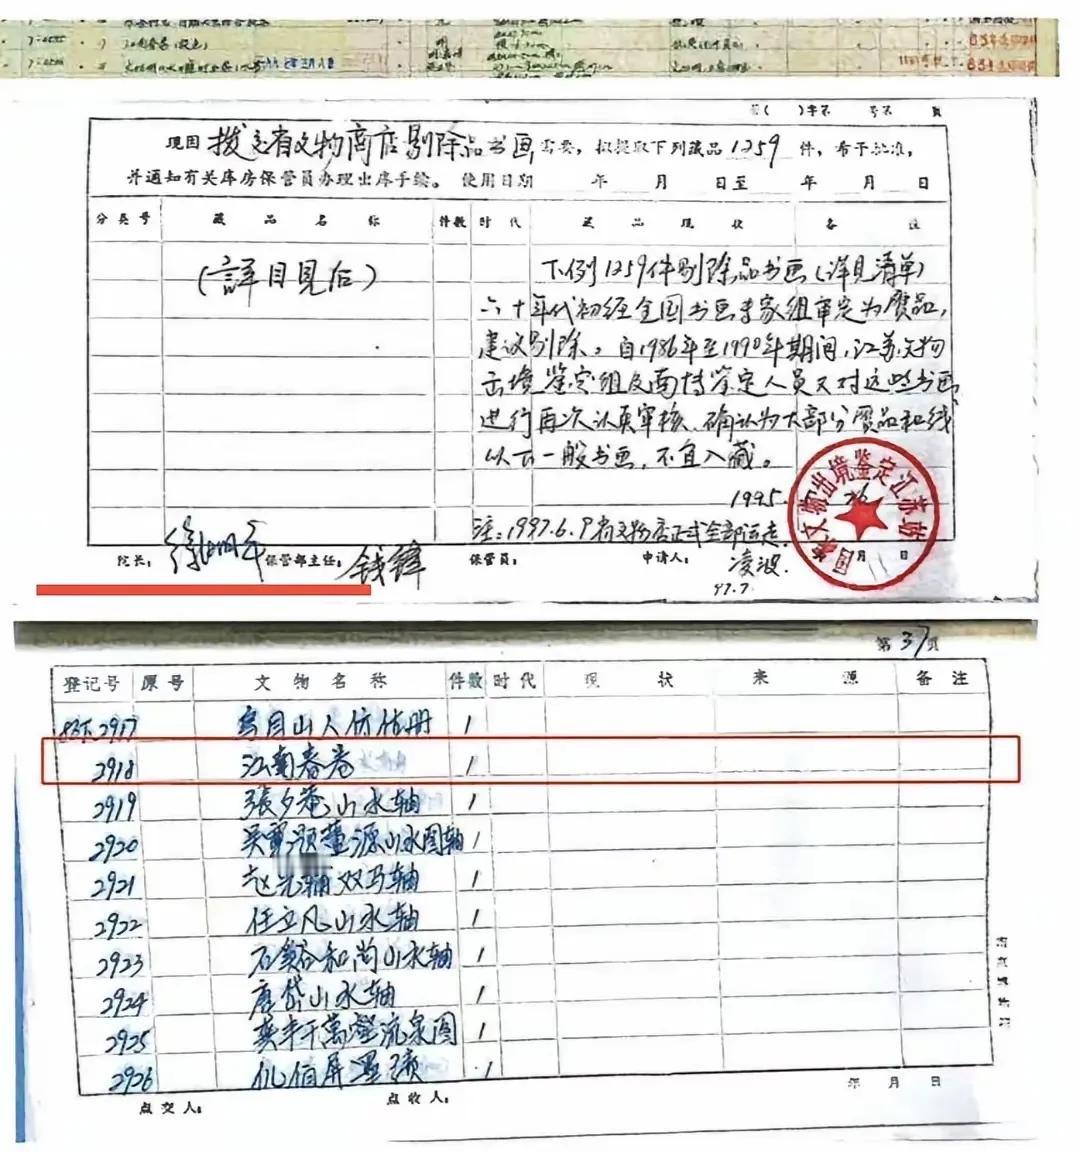 第( )字第 号第 頁
现因 拨交省文物商店剔除品书画 需要，拟提取下列藏品 1259 件，希予批准，
并通知有关库房保管员办理出库手续。使用日期 年 月 日至 年 月 日
分类号 藏品名称 件数 时代 藏品现状 备注
(詳目見后)
下例1259件剔除品书画(详见清单)
六十年代初经全国书画专家组审定为赝品，
建议剔除。自1986年至1990年期间，江苏文物
出境鉴定组及南博鉴定人员又对这些书画
进行再次认真审核、确认为大部分赝品和线
以下一般书画，不宜入藏。
1995.
注：1997.6.9省文物店正式全部运走.
院长： 徐湖平 保管部主任： 钱锋 保管员： 申请人： 凌波. 月 日
97.7
国家文物出境鉴定江苏站
第 37 页
登记号 原号 文物名称 件数 时代 现状 来源 备注
2917 烏目山人仿古册 1
2918 江南春卷 1
2919 張夕菴山水轴 1
2920 山水图轴 1
2921 双马轴 1
2922 任立凡山水轴 1
2923 石溪和尚山水轴 1
2924 唐岱山水轴 1
2925 龚半千萬壑流泉图 1
2926 仉伯屏墨 1
年 月 日
点交人： 点收人：